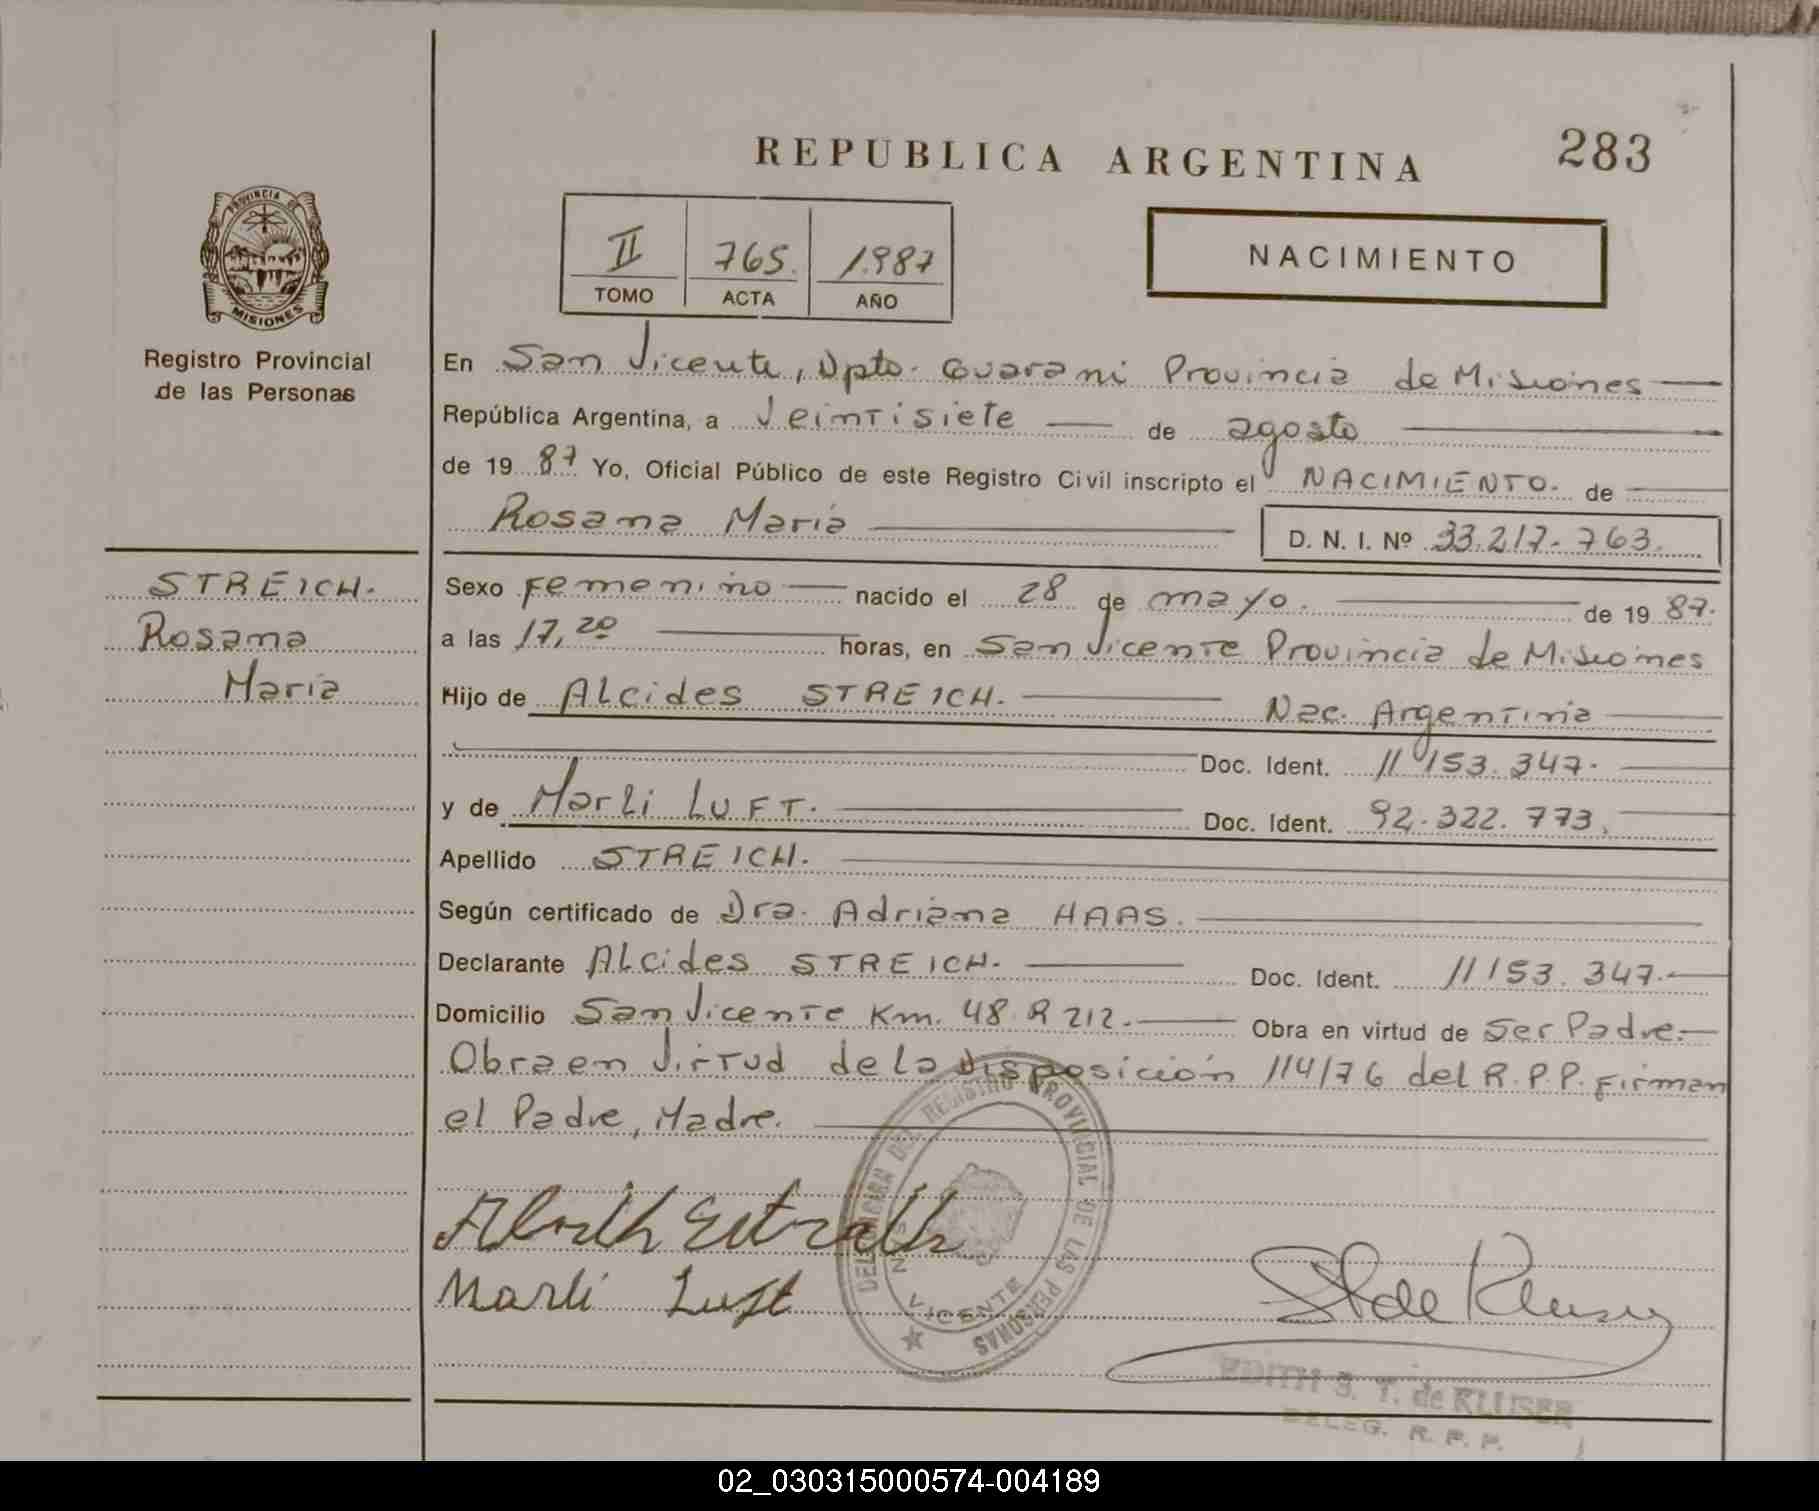 REPUBLICA ARGENTINA
283
PROVINCIA DE
MISIONES
Registro Provincial
de las Personas
II 765. 1.987
TOMO ACTA AÑO
NACIMIENTO
En San Vicente, Dpto. Guarani Provincia de Misiones
República Argentina, a Veintisiete de agosto
de 19 87 Yo, Oficial Público de este Registro Civil inscripto el NACIMIENTO. de
Rosana Maria D. N. I. Nº 33.217.763.
STREICH.
Rosana
Maria
Sexo Femenino nacido el 28 de mayo. de 19 87.
a las 17,20 horas, en San Vicente Provincia de Misiones
Hijo de Alcides STREICH. Nac. Argentina
Doc. Ident. 11 153.347.
y de Marli LUFT. Doc. Ident. 92.322.773.
Apellido STREICH.
Según certificado de Dra. Adriana HAAS.
Declarante Alcides STREICH. Doc. Ident. 11153.347.
Domicilio San Vicente Km. 48 R 212. Obra en virtud de Ser Padre.
Obra en Virtud de la Disposición 114/76 del R.P.P. Firman
el Padre, Madre.
DELEGACION DEL REGISTRO PROVINCIAL DE LAS PERSONAS
SAN VICENTE
Marli Luft
EDITH S. T. de KLUSER
DELEG. R. P. P.
02_030315000574-004189